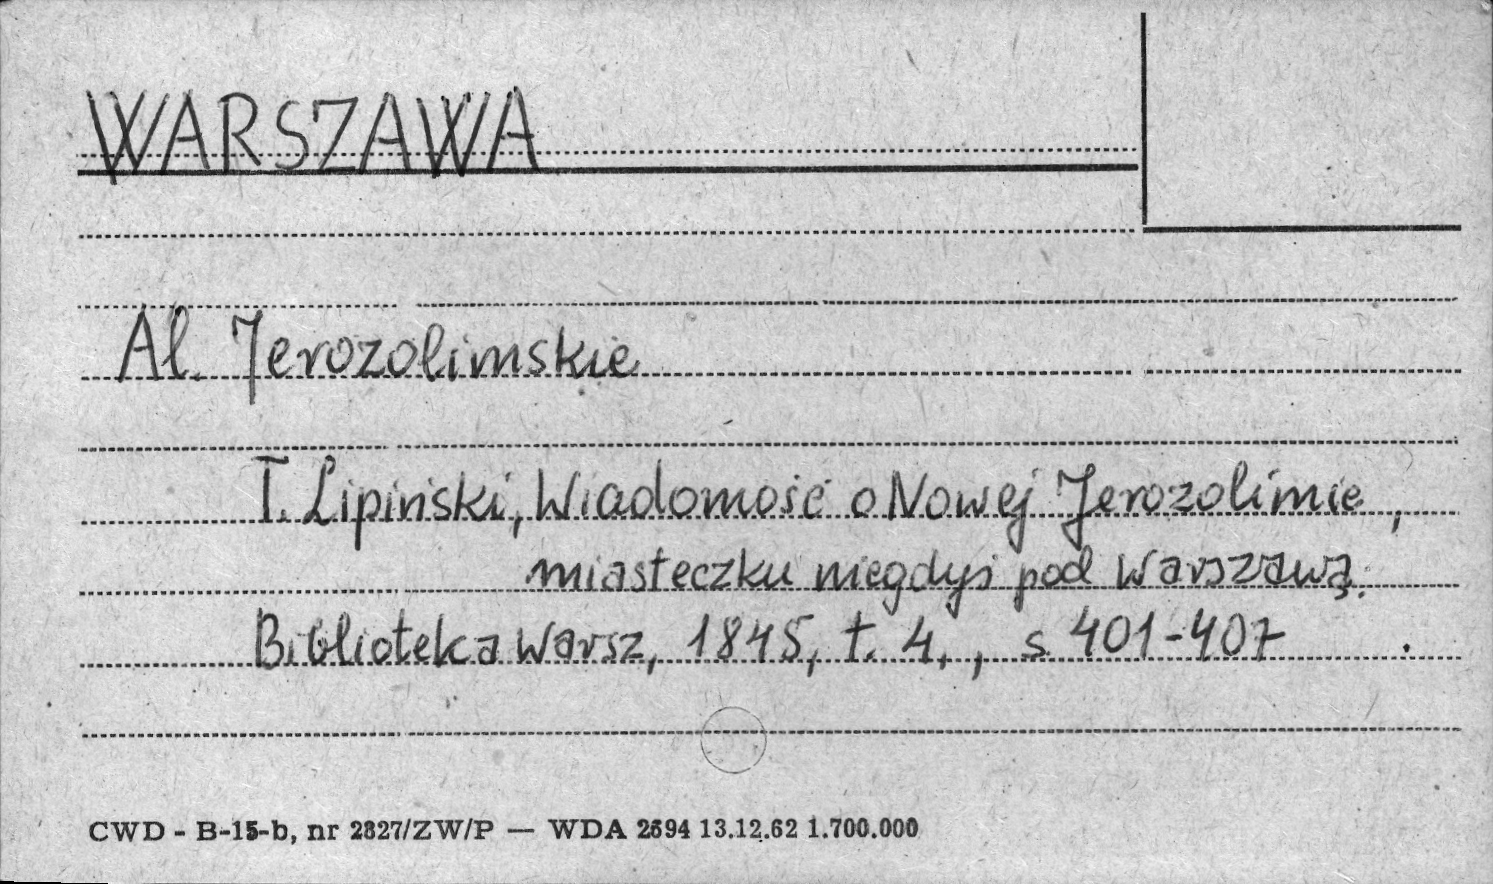 WARSZAWA
Al. Jerozolimskie
T. Lipiński, Wiadomość o Nowej Jerozolimie,
miasteczku niegdyś pod Warszawą.
Biblioteka Warsz, 1845, t. 4., s 401-407 .
CWD - B-15-b, nr 2827/ZW/P — WDA 2594 13.12.62 1.700.000